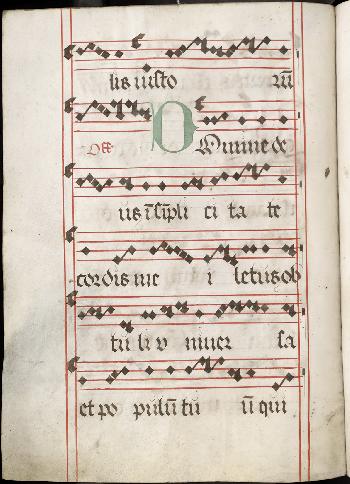 lis iusto
Off Domine de
us i͞si͞pli ci ta te
cordis me i letus ob
tu li v niuer sa
et po pulu͞ tu u͞ qui